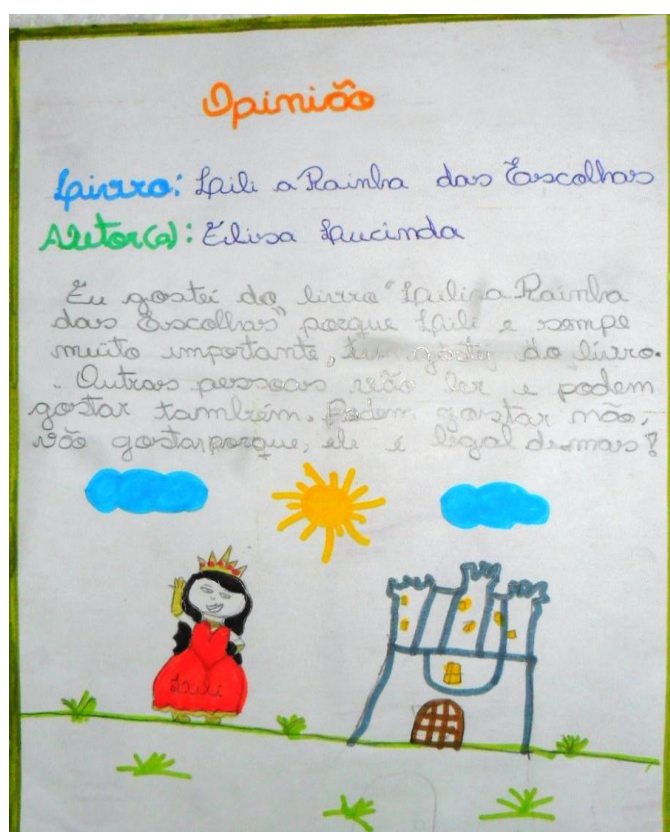 Opinião
Livro: Lili a Rainha das Escolhas
Autor(a): Elisa Lucinda
Eu gostei do livro "Lulina Rainha
das Escolhas" porque Lili e sempe
muito importante, Eu gostei do livro.
. Outras pessoas vão ler e podem
gostar também. Podem gostar não,
vão gostar porque, ele e legal demais!
Lili